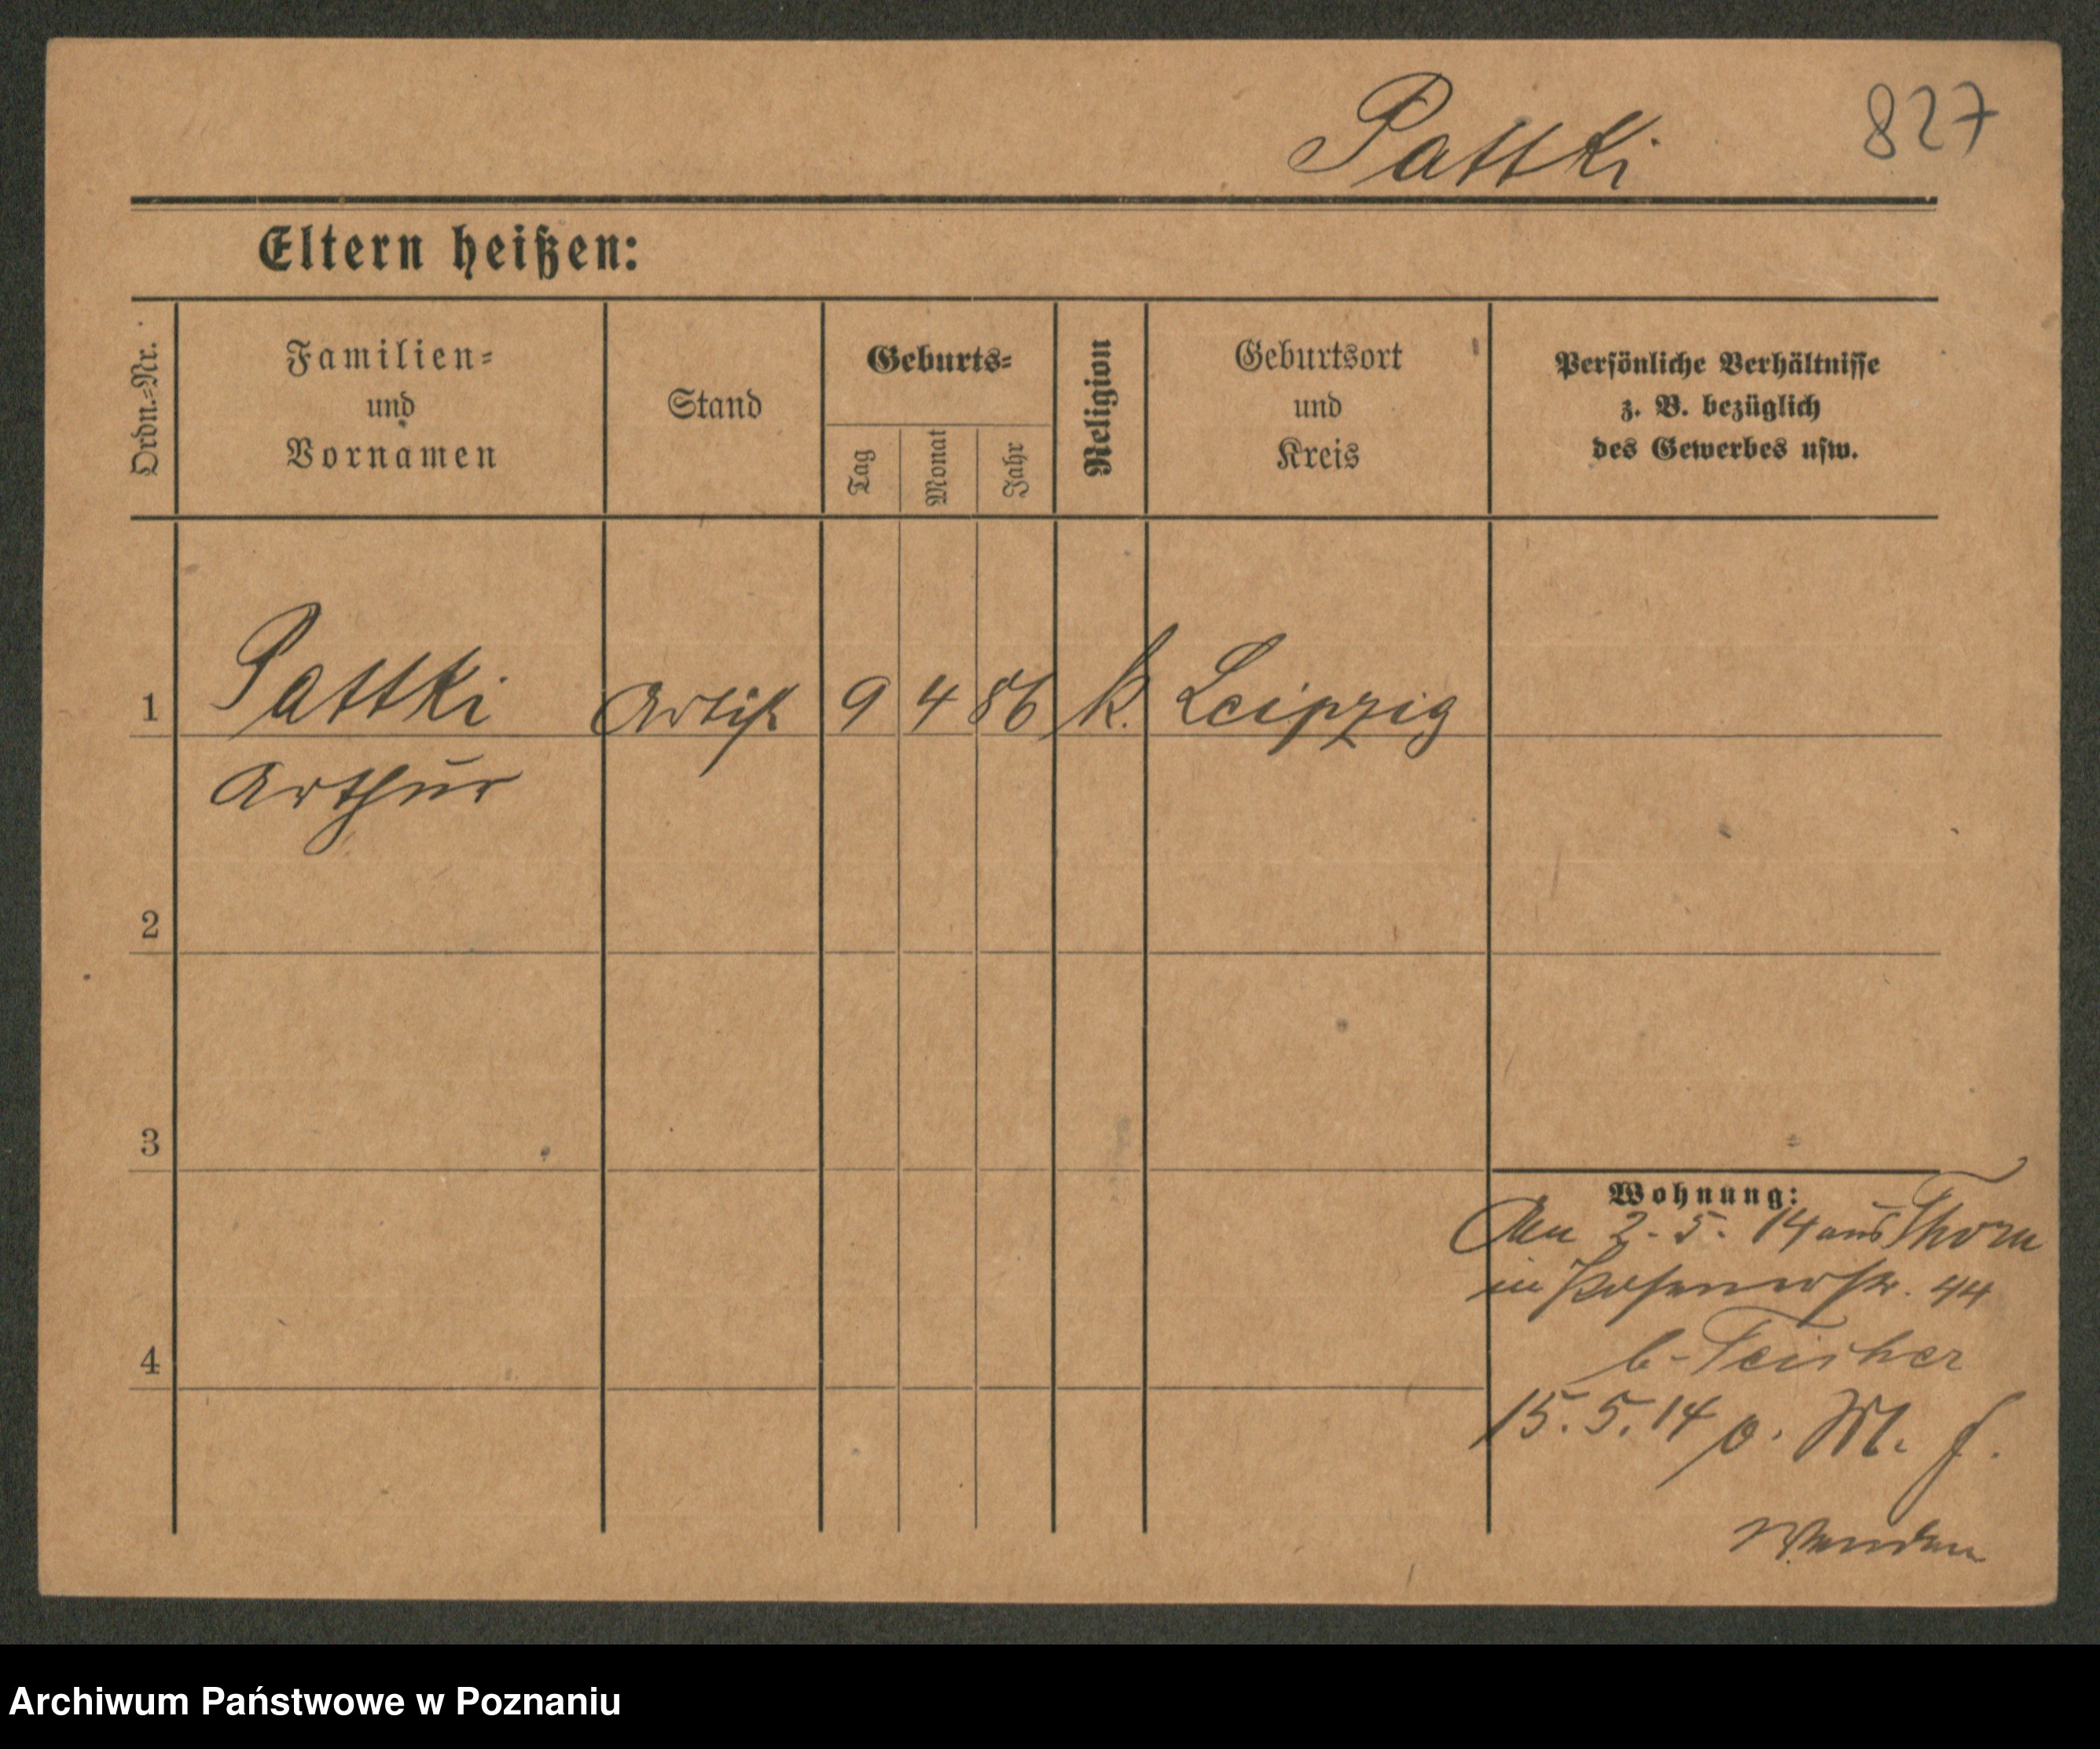 Pattki 827
Eltern heißen:
Ordn.-Nr.
Familien-
und
Vornamen
Stand
Geburts-
Tag
Monat
Jahr
Religion
Geburtsort
und
Kreis
Persönliche Verhältnisse
z. B. bezüglich
des Gewerbes usw.
1 Pattki Artist 9 4 86 k. Leipzig
Arthur
2
3
4
Wohnung:
2. 5. 14 aus Thorn
in Posenerstr. 44
b.
15. 5. 14 o. M. f.
Archiwum Państwowe w Poznaniu